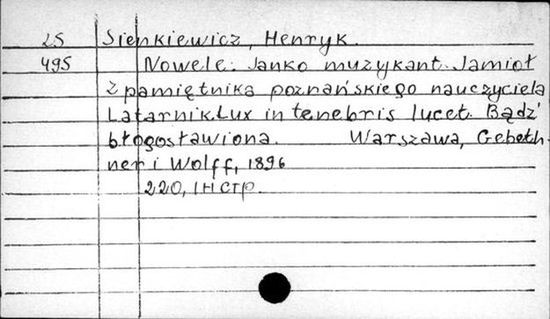 25 Sienkiewicz, Henryk.
495 Nowele. Janko muzykant. Jamioł
z pamiętnika poznańskiego nauczyciela
Latarnik. Lux in tenebris lucet. Bądź
błogosławiona. Warszawa, Gebeth-
ner i Wolff, 1896
220, 1н стр.